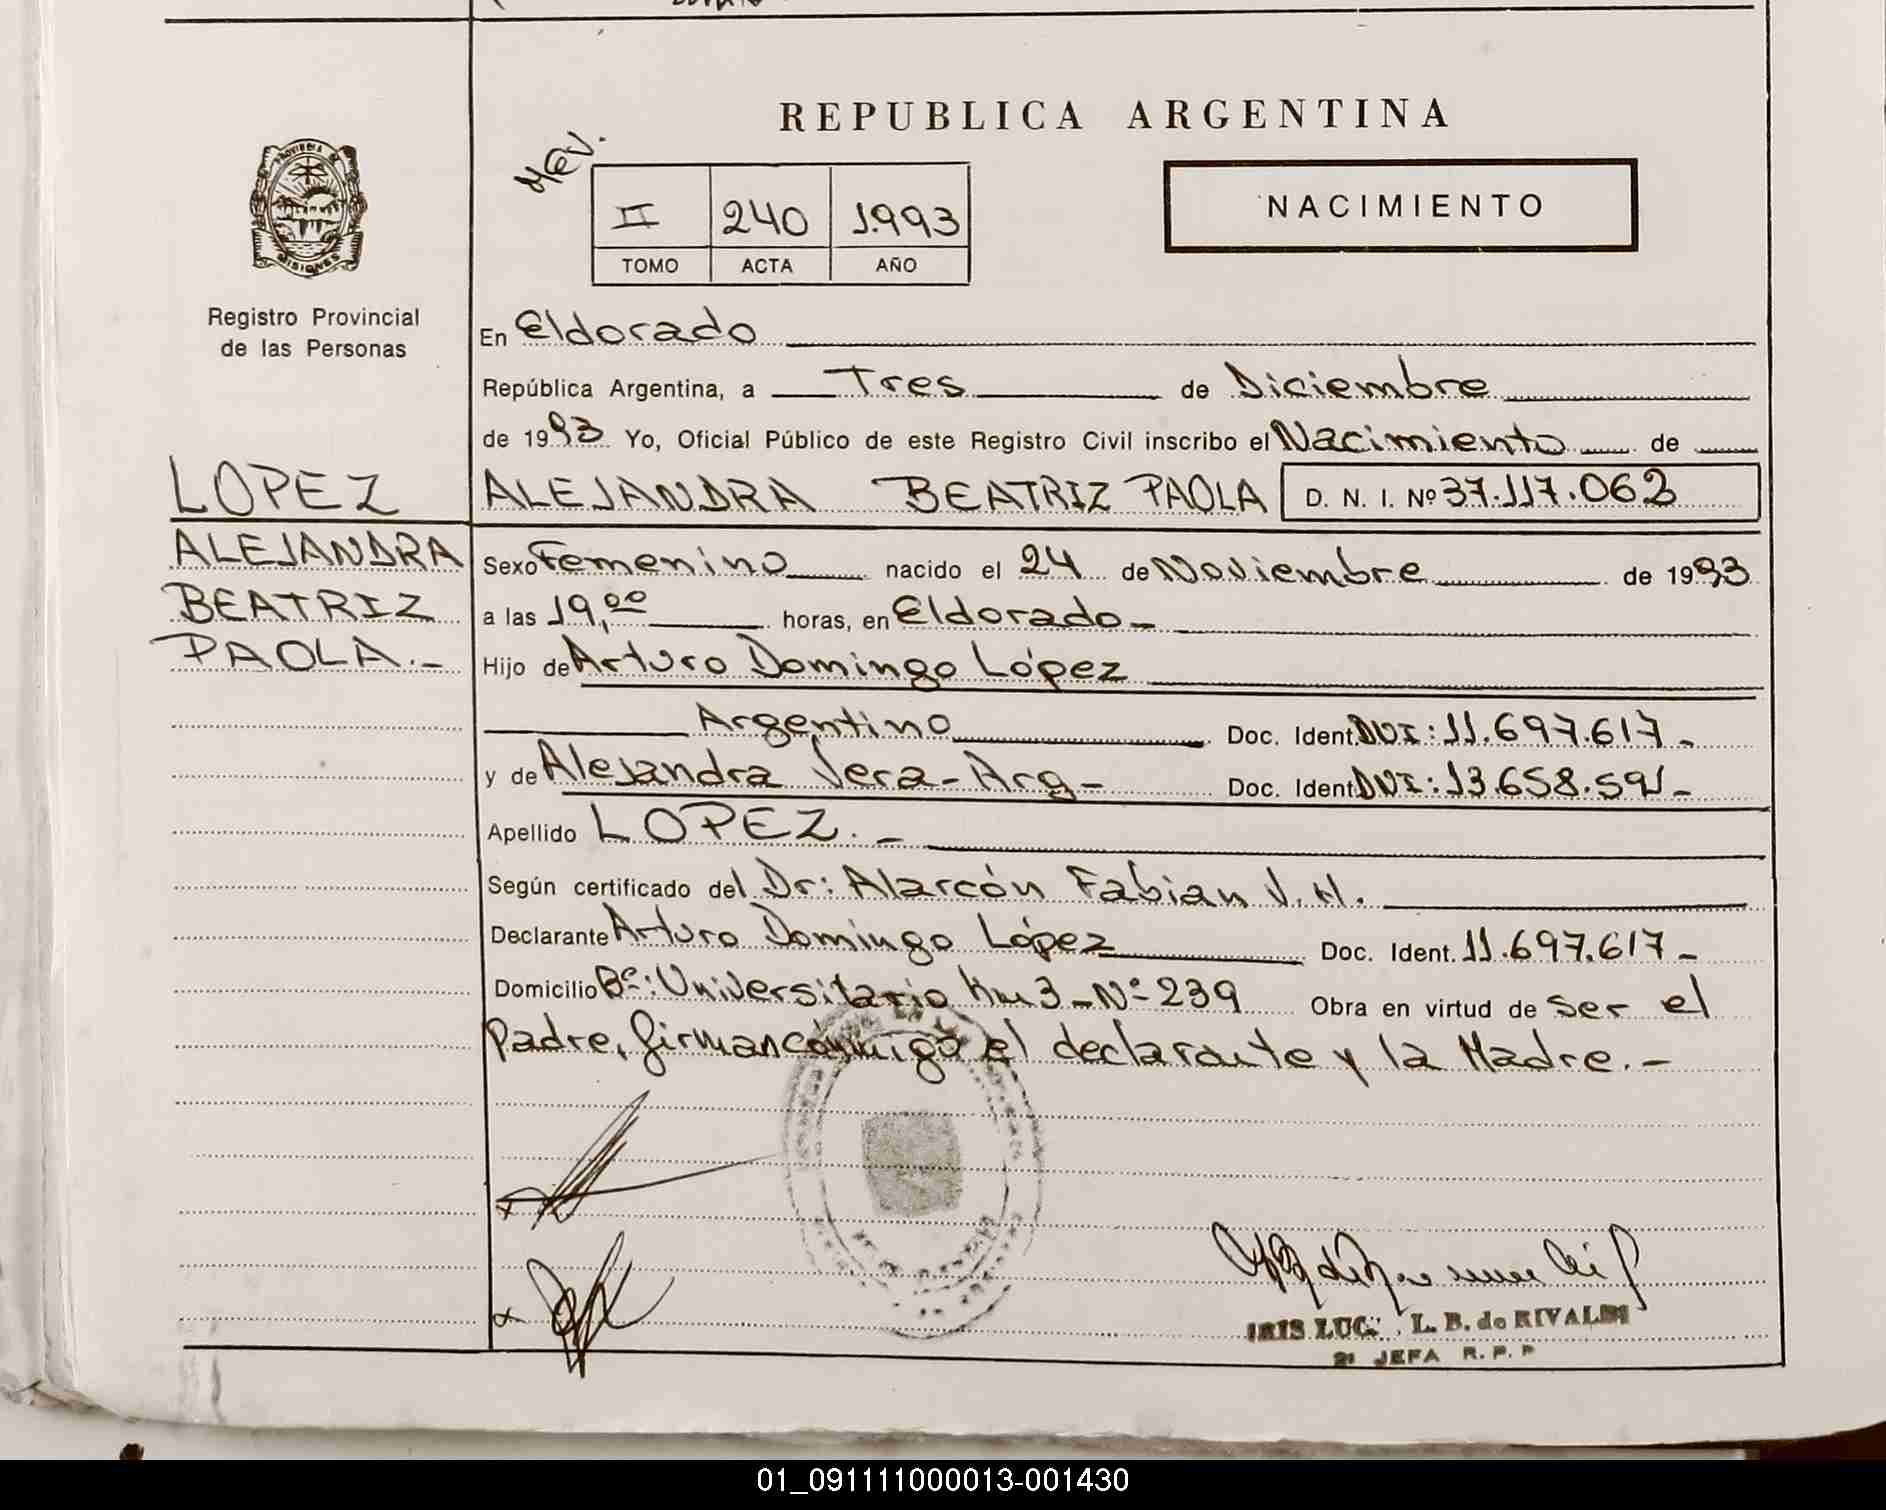 REPUBLICA ARGENTINA
PROVINCIA DE
MISIONES
Registro Provincial
de las Personas
II 240 1.993
TOMO ACTA AÑO
NACIMIENTO
En Eldorado
República Argentina, a Tres de Diciembre
de 1993 Yo, Oficial Público de este Registro Civil inscribo el Nacimiento de
LOPEZ
ALEJANDRA
BEATRIZ
PAOLA.-
ALEJANDRA BEATRIZ PAOLA D. N. I. Nº 37.117.062
Sexo Femenino nacido el 24 de Noviembre de 1993
a las 19,00 horas, en Eldorado-
Hijo de Arturo Domingo López
Argentino Doc. Ident. DNI: 11.697.617-
y de Alejandra Vera-Arg- Doc. Ident. DNI: 13.658.591-
Apellido LOPEZ.-
Según certificado del Dr: Alarcón Fabian V. H.
Declarante Arturo Domingo López Doc. Ident. 11.697.617-
Domicilio Bº: Universitario Km 3-Nº 239 Obra en virtud de ser el
Padre, firman conmigo el declarante y la Madre.-
IRIS L. B. de RIVALDI
JEFA R. P. P
01_091111000013-001430